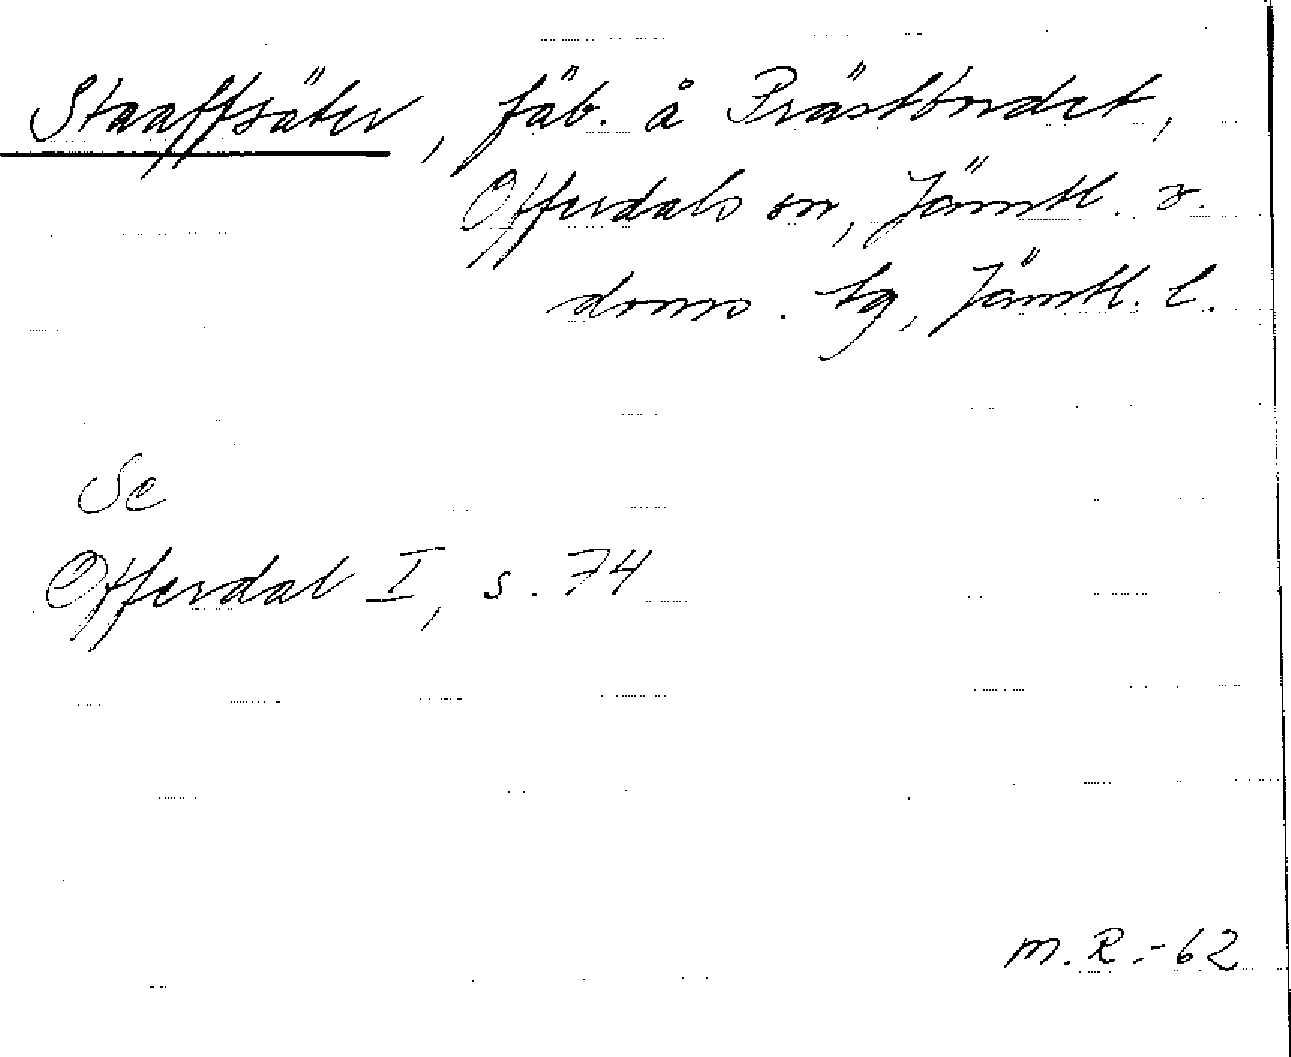 Staaffsäter, fäb. å Prästbordet,
Offerdals sn, Jämtl. v.
doms. tg, Jämtl. l.
Se
Offerdal I, s. 74
M.R.-62